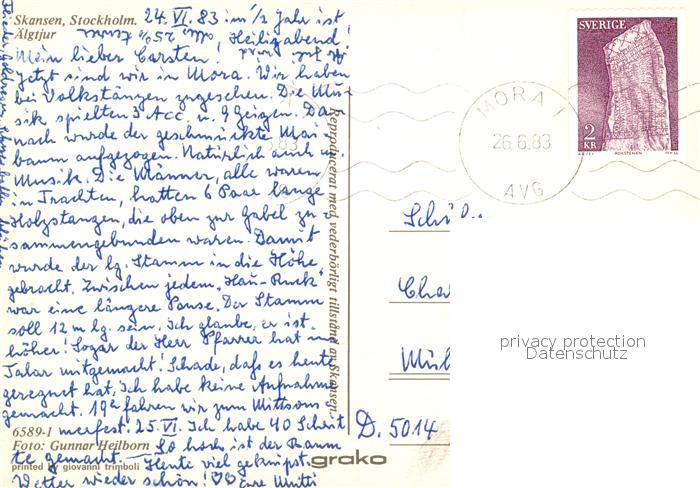 Skansen, Stockholm.
Älgtjur
24. VI. 83 im ½ Jahr ist
Heiligabend!
Mein lieber Carsten!
Jetzt sind wir in Mora. Wir haben
bei Volkstänzen zugesehen. Die Mu-
sik spielten 3 Acc. u. 9 Geigen. Da-
nach wurde der geschmückte Mai-
baum aufgezogen. Natürlich auch m.
Musik. Die Männer, alle waren
in Trachten, hatten 6 Paar lange
Holzstangen, die oben zur Gabel zu-
sammengebunden waren. Damit
wurde der lg. Stamm in die Höhe
gebracht. Zwischen jedem „Hau-Ruck"
war eine längere Pause. Der Stamm
soll 12 m lg. sein. Ich glaube, er ist
höher! Sogar der Herr Pfarrer hat im
Talar mitgemacht! Schade, daß es heute
geregnet hat, ich habe keine Aufnahme
gemacht. 19° fahren wir zum Mittsom-
merfest. 25. VI. Ich habe 40 Schritt
gemacht – so hoch ist der Baum
Heute viel geknipst.
Wetter wieder schön! ♡♡ Eure Mutti
6589-1
Foto: Gunnar Heilborn
printed by giovanni trimboli
grako
Reproducerat med vederbörligt tillstånd av Skansen.
SVERIGE
2
KR
RÖKSTENEN
MORA 1
26.6.83
AVG
Schü
Cha
Mül
D. 5014
privacy protection
Datenschutz